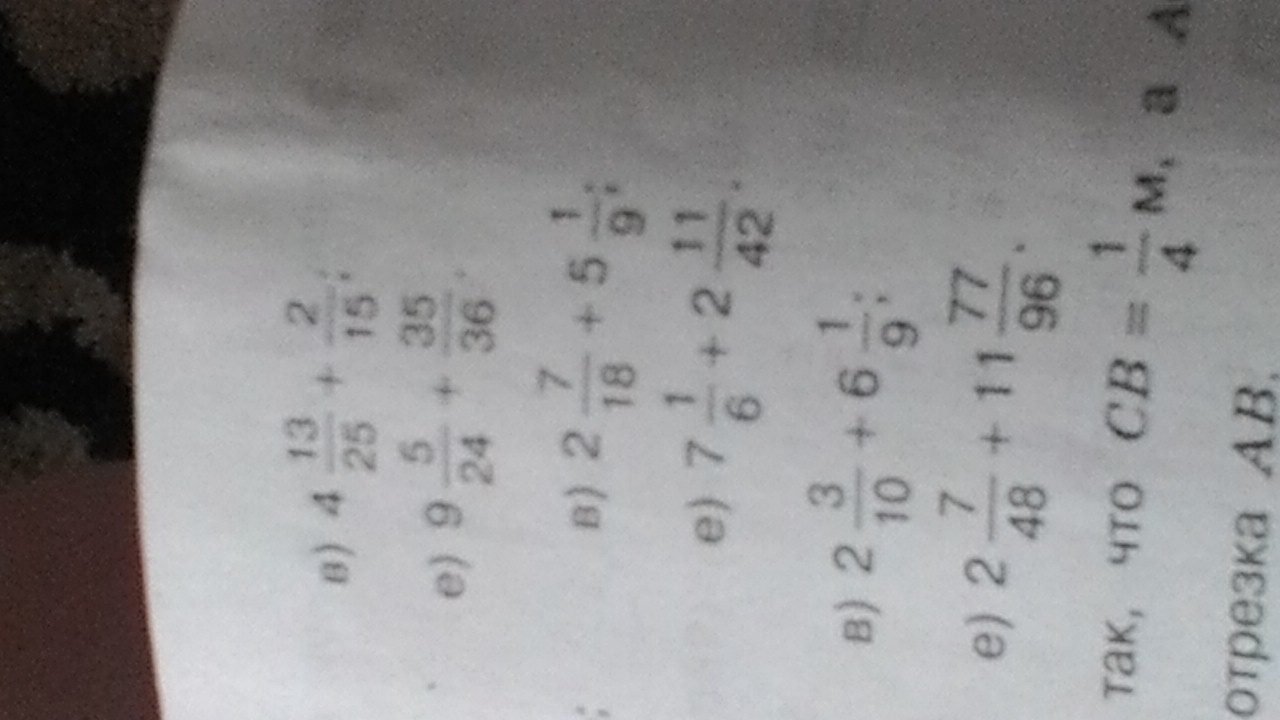 в) 4 13/25 + 2/15;
е) 9 5/24 + 35/36.
в) 2 7/18 + 5 1/9;
е) 7 1/6 + 2 11/42.
в) 2 3/10 + 6 1/9;
е) 2 7/48 + 11 77/96.
так, что CB = 1/4 м, а
отрезка AB.